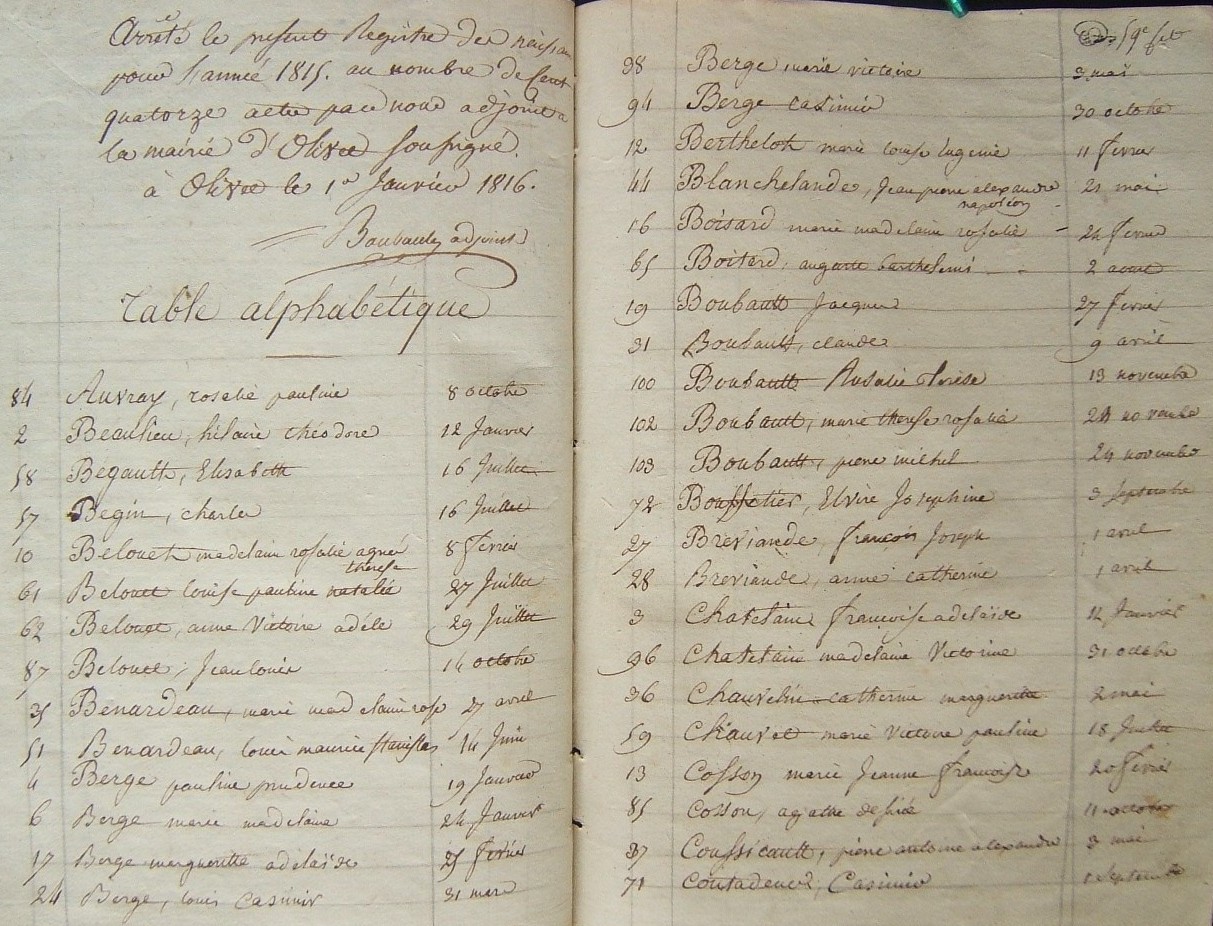 Arreté le present Registre des naissan
pour l'année 1815. au nombre de Cent
quatorze actes par nous adjoint a
la mairie d'Olivet soussigné.
à Olivet le 1er Janvier 1816.
Boubault adjoint
Table alphabétique
84 Auvray, rosalie pauline 8 octobre
2 Beaulieu, hilaire théodore 12 Janvier
58 Bégault, Elisabeth 16 Juillet
57 Begin, charles 16 Juillet
10 Belouet madelaine rosalie agnée 8 fevrier
therese
61 Belouet louise pauline natalie 27 Juillet
62 Belouet, anne Victoire adéle 29 Juillet
87 Belouet, Jean louis 14 octobre
35 Benardeau, marie madelaine rose 27 avril
51 Benardeau, louis maurice stanislas 14 Juin
4 Berge pauline prudence 19 Janvier
6 Berge marie madelaine 24 Janvier
17 Berge margueritte adelaïde 25 fevrier
24 Berge, louis Casimir 31 mars
19e fet
38 Berge marie victoire 3 mai
94 Berge casimir 30 octobre
12 Berthelot marie louise Eugenie 11 fevrier
44 Blanchelande, Jean pierre alexandre 21 mai
napoléon
16 Boisard marie madelaine rosalie 24 fevrier
65 Boitard, auguste barthelemi 2 aout
19 Boubault Jacques 27 fevrier
31 Boubault, claude 9 avril
100 Boubault Rosalie Terèse 13 novembre
102 Boubault, marie therese rosalie 24 novembre
103 Boubault, pierre michel 24 novembre
72 Bouffetier, Elvire Josephine 3 septembre
27 Breviande, françois Joseph 1 avril
28 Breviande, anne catherine 1 avril
3 Chatelain françoise adelaïde 14 Janvier
96 Chatelain madelaine Victorine 31 octobre
36 Chauvelin catherine margueritte 2 mai
59 Chauvet marie Victoire pauline 18 Juillet
13 Cosson marie Jeanne françoise 20 fevrier
85 Cosson, agathe desirée 11 octobre
37 Coussicault, pierre antoine alexandre 3 mai
71 Casimir 1 Septembre